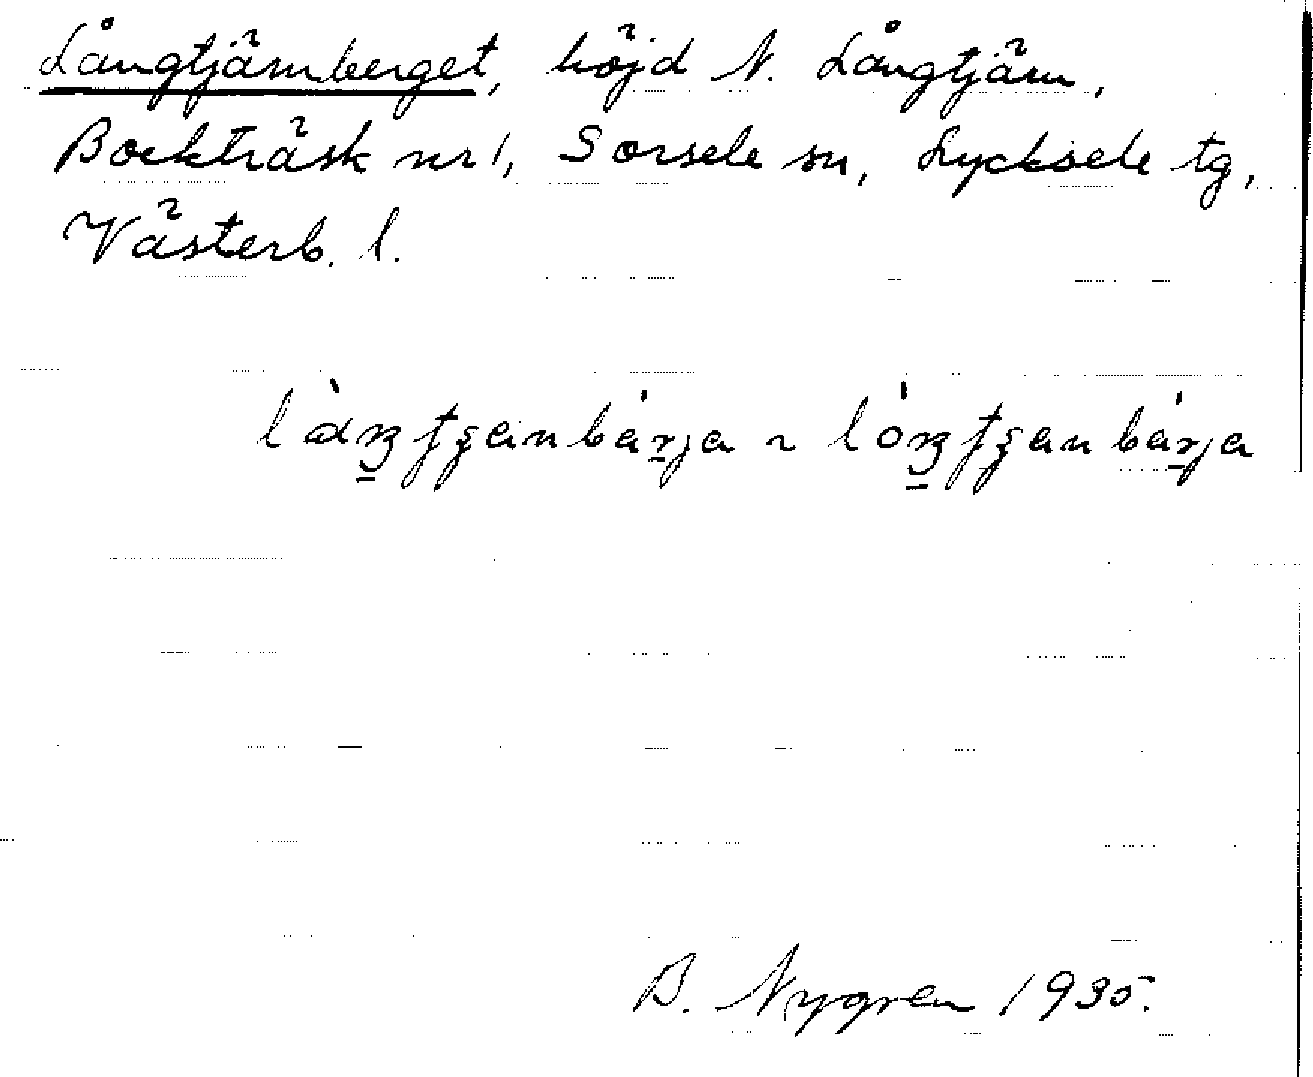 Långtjärnberget, höjd N. Långtjärn,
Bockträsk nr 1, Sorsele sn, Lycksele tg,
Västerb. l.
B. Nygren 1935.